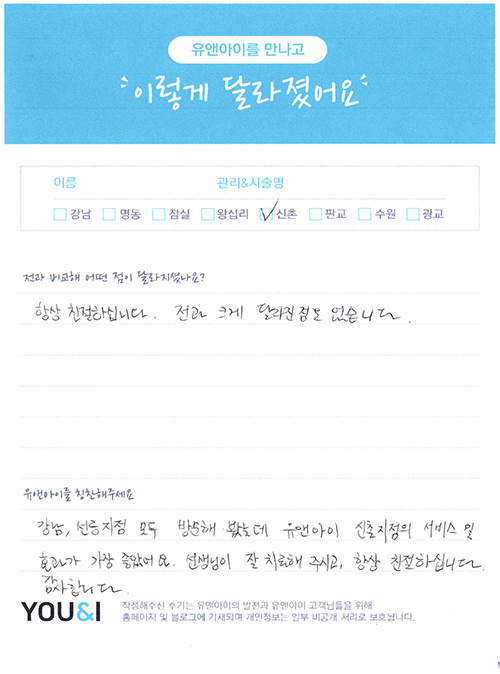 유앤아이를 만나고
이렇게 달라졌어요
이름 관리&시술명
강남 명동 잠실 왕십리 신촌 판교 수원 광교
전과 비교해 어떤 점이 달라지셨나요?
항상 친절하십니다. 전과 크게 달라진점은 없습니다.
유앤아이를 칭찬해주세요
강남, 선릉지점 모두 방문해 봤는데 유앤아이 신촌지점의 서비스 및
효과가 가장 좋았어요. 선생님이 잘 치료해 주시고, 항상 친절하십니다.
감사합니다.
YOU&I
작성해주신 후기는 유앤아이의 발전과 유앤아이 고객님들을 위해
홈페이지 및 블로그에 기재되며 개인정보는 일부 비공개 처리로 보호됩니다.